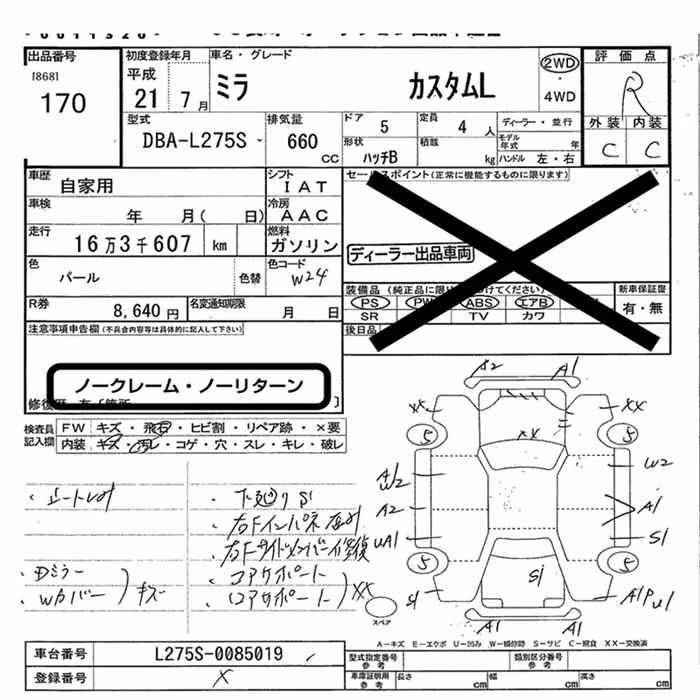 出品番号
[868]
170
初度登録年月
平成
21年 7月
車名・グレード
ミラ カスタムL
2WD
・
4WD
評価点
R
外装 内装
C C
型式
DBA-L275S
排気量
660
CC
ドア 5
定員 4 人
ディーラー・並行
形状
ハッチB
積載
kg
モデル
年式 年
ハンドル 左・右
車歴
自家用
シフト
IAT
車検
年 月( 日)
冷房
AAC
走行
16万3千607 km
燃料
ガソリン
色
パール
色替
色コード
W24
R券
8,640 円
名変通知期限
月 日
セールスポイント(正常に機能するものに限ります)
ディーラー出品車両
新車保証書
有・無
PS PW ABS エアB
SR TV カワ
後日品
注意事項申告欄(不具合内容等は具体的に記入して下さい)
ノークレーム・ノーリターン
検査員
記入欄
FW キズ・飛石・ヒビ割・リペア跡・×要
内装 キズ・汚レ・コゲ・穴・スレ・キレ・破レ
・下廻りS1
・Dミラー
・Wカバー ) キズ
・コアサポート
・ロアサポート ) XX
S2 A1
XX XX
5 5
XX
A1
W2 W2
A2 A1
UA1 S1
5 5
S1
S1 A1 P U1
A1 A1
スペア
A-キズ E-エクボ U-凹み W-補修跡 S-サビ C-腐食 XX-交換済
車台番号
L275S-0085019
登録番号
×
型式指定番号
参考
類別区分番号
参考
車庫証明用
参考
長さ cm 幅 cm 高さ cm